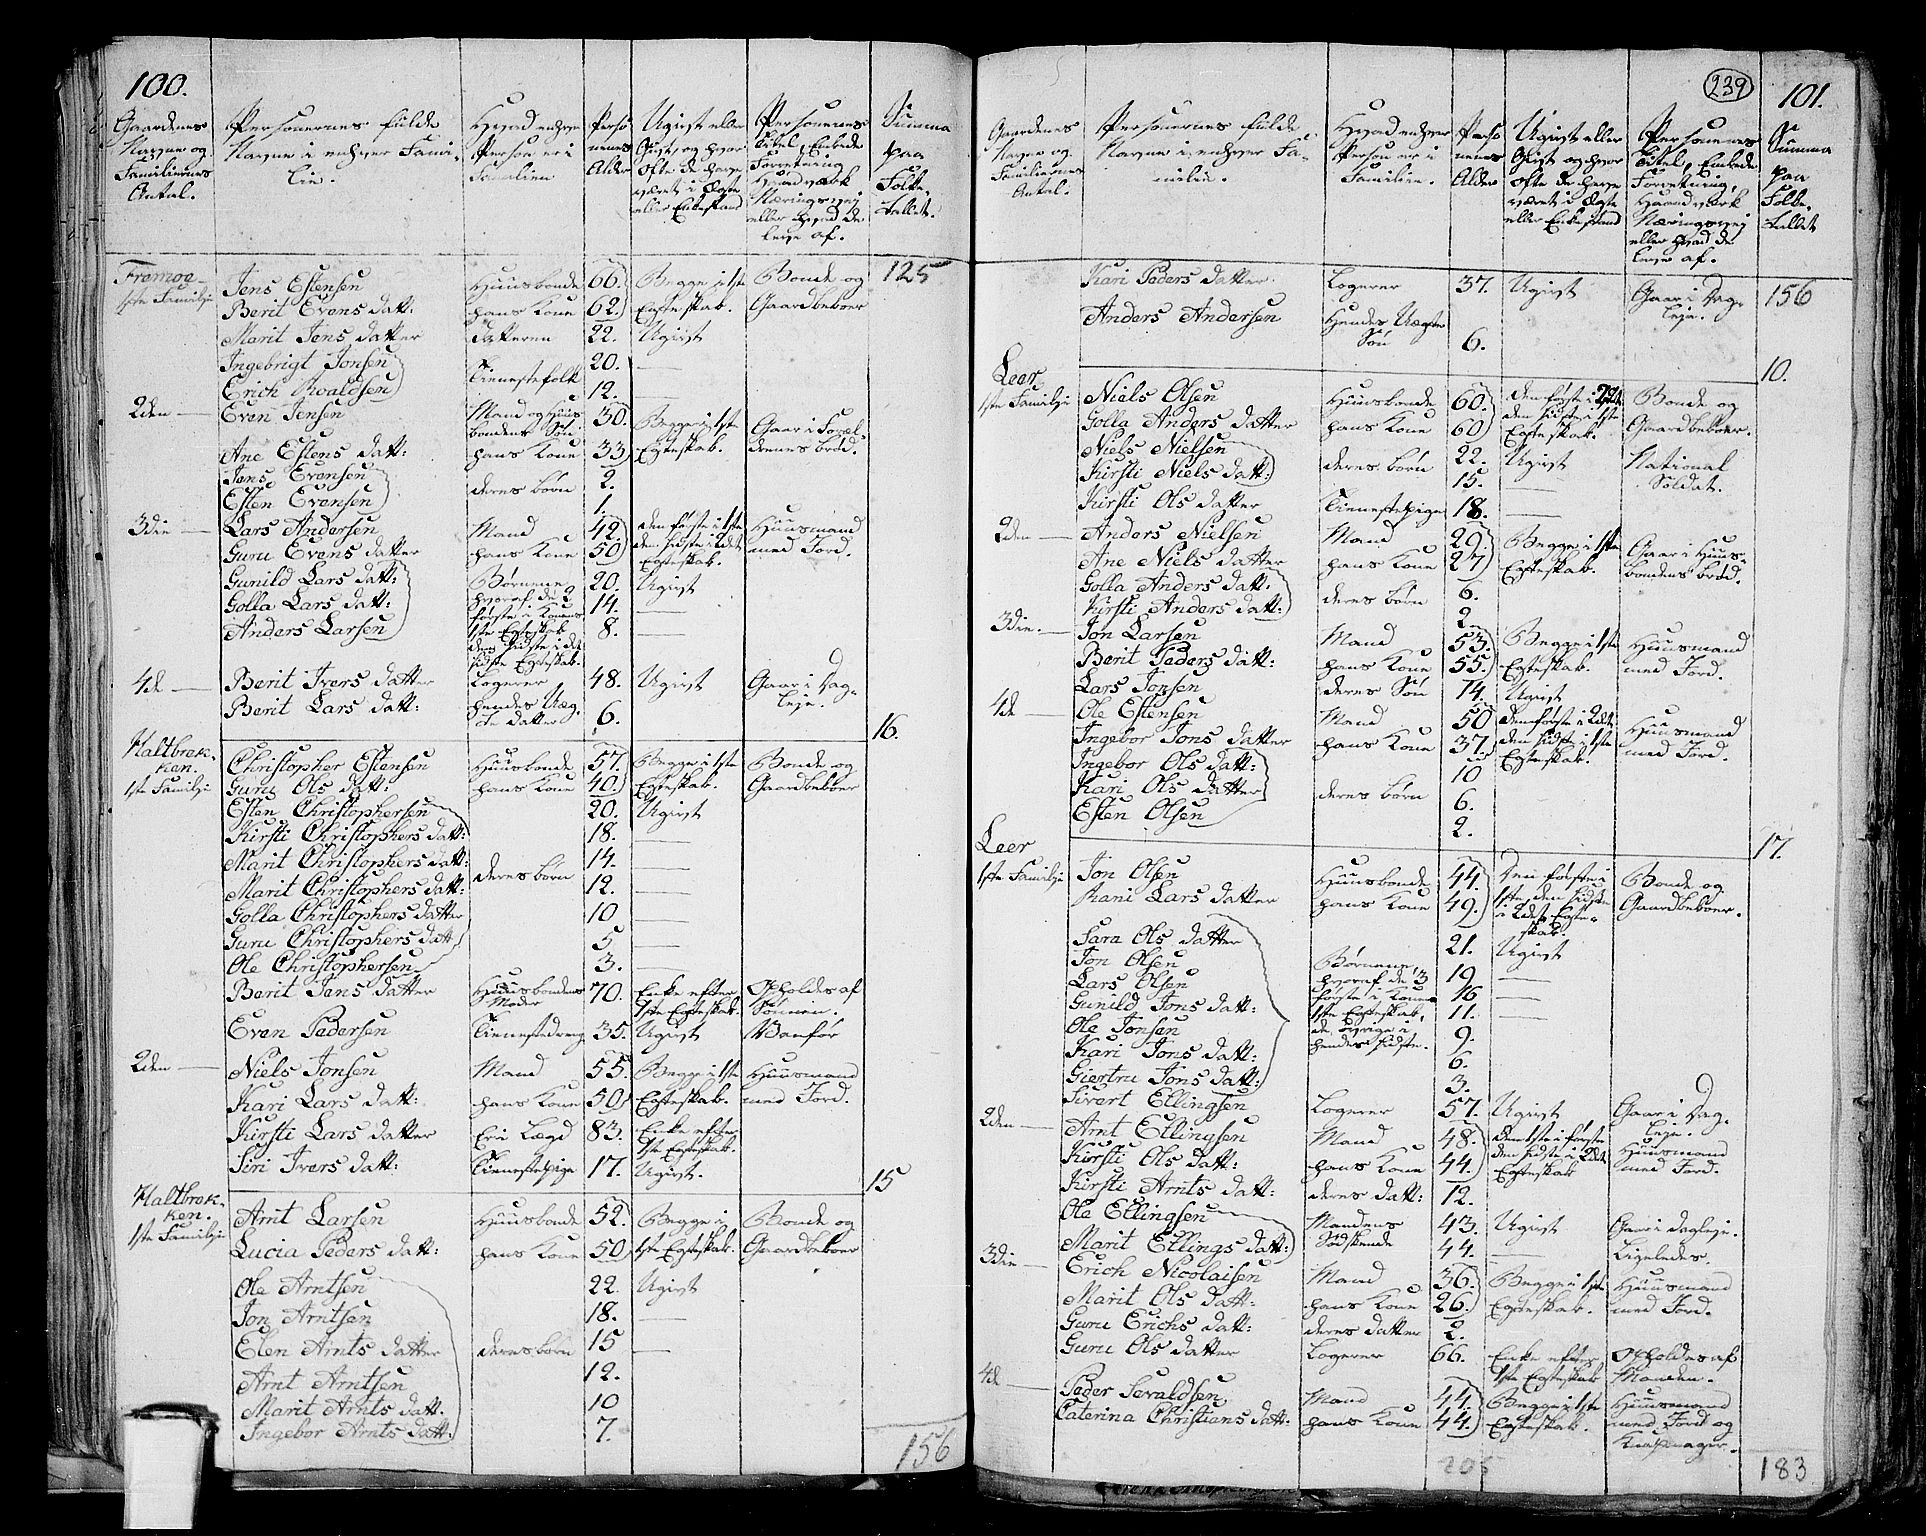 100.
Gaardenes Navne og Familiernes Antal.
Personernes fulde Navne i enhver Familie.
Hvad enhver Person er i Familien
Personernes Alder
Ugivt eller Gift, og hvor ofte de have været i Ægte eller Enkestand
Personernes Titel, Embede Forretning Haandværk Næringsvej eller hvad de leve af.
Summa paa Folketallet.
Fremoe 125
1ste Familje Jens Estensen Huusbonde 66. Begge i 1ste Bonde og
Berit Evens datt: hans Kone 62. Egteskab. Gaardbeboer
Marit Jens datter datteren 22. Ugivt
Ingebrigt Jonsen Tienestefolk 20. —
Erich Roaldsen 12.
2den — Even Jensen Mand og Huusbondens Søn 30. Begge i 1ste Gaar i Forældrenes brød.
Ane Estens datt: hans Kone 33 Egteskab.
Jens Evensen deres børn 2.
Esten Evensen 1.
3die — Lars Andersen Mand 42. den første i 1ste Huusmand
Guru Evens datter hans Kone 50 den sidste i 2det Egteskab. med Jord.
Gunild Lars datt: Børnene 20. Ugivt
Golla Lars datt: hvoraf de 2 første i Konens 14. —
Anders Larsen 1ste Egteskab den sidste i det sidste Egteskab. 8. —
4de — Berit Ivers datter Logerer 48. Ugivt Gaar i Dagleje.
Berit Lars datt: hendes Uægte datter 6.
16.
Kaltbrekken.
1ste Familje Christopher Estensen Huusbonde 57. Begge i 1ste Bonde og
Guru Ols datt: hans Kone 40. Egteskab. Gaardbeboer
Esten Christophersen 20. Ugivt
Kirsti Christophers datt: 18. —
Marit Christophers datt: deres børn 14. —
Marit Christophers datt: 12. —
Golla Christophers datter 10 —
Guru Christophers datt 5 —
Ole Christophersen 3. —
Berit Jens datter Huusbondens Moder 70. Enke efter 1ste Egteskab Opholdes af Sønnen.
Even Pedersen Tienestedreng 35. Ugivt Vanfør
2den — Niels Jonsen Mand 55. Begge i 1ste Huusmand
Kari Lars datt: hans Kone 50 Egteskab. med Jord.
Kirsti Lars datter Er i Lægd 83. Enke efter 1ste Egteskab.
Siri Ivers datt: Tienestepige 17. Ugivt.
15
Kaltbrekken.
1ste Familje Arnt Larsen Huusbonde 52. Begge i Bonde og
Lucia Peders datt: hans Kone 50 1ste Egteskab. Gaardbeboer
Ole Arntsen 22. Ugivt
Jon Arntsen 18. —
Elen Arnts datter deres børn 15 —
Arnt Arntsen 12.
Marit Arnts datt. 10
Ingebor Arnts datt. 7.
156
239
101.
Gaardenes Navne og Familiernes Antal.
Personernes fulde Navne i enhver Familie.
Hvad enhver Person er i Familien.
Personernes Alder
Ugivt eller Gift og hvor ofte de have været i Ægte eller Enkestand
Personernes Titel, Embede Forretning, Haandværk Næringsvej eller hvad de leve af.
Summa paa Folketallet
Kari Peders datter Logerer 37. Ugivt Gaar i Dagleje. 156
Anders Andersen Hendes Uægte Søn 6.
10.
Leer
1ste Familje Niels Olsen Huusbonde 60. den første i 2det Bonde og
Golla Anders datter hans Kone 60 den sidste i 1ste Egteskab. Gaardbeboer.
Niels Nielsen deres børn 22. Ugivt National Soldat.
Kirsti Niels datt: 15. —
Kirsti Ols datter Tienestepige 18. —
2den — Anders Nielsen Mand 29 Begge i 1ste Gaar i Huusbondens brød.
Ane Niels datter hans Kone 27 Egteskab.
Golla Anders datt. deres børn 6.
Kirsti Anders datt: 2.
3die. — Jon Larsen Mand 53. Begge i 1ste Huusmand
Berit Peders datt: hans Kone 55. Egteskab. med Jord.
Lars Jonsen deres Søn 14. Ugivt
4de — Ole Estensen Mand 50 Den første i 2det Huusmand
Ingebor Jons datter hans Kone 37. den sidste i 1ste Egteskab. med Jord.
Ingebor Ols datt: 10
Kari Ols datter deres børn 6.
Esten Olsen 2.
17.
Leer
1ste Familje Jon Olsen Huusbonde 44. Den første i 1ste, den sidste Bonde og
Kani Lars datter hans Kone 49. i 2det Egteskab. Gaardbeboer.
Sara Ols datter 21. Ugivt
Jon Olsen Børnene, 19 —
Lars Olsen hvoraf de 3 16 —
Gunild Jons datt: første i Konens 11. —
Ole Jonsen 1ste Egteskab, 9.
Kari Jons datt: de øvrige i 6.
Giertru Jons datt: hendes sidste. 3.
Sivert Ellingsen Logerer 57. Ugivt Gaar i Dagleje.
2den — Arnt Ellingsen Mand 48. Den 1ste i første Huusmand
Kirsti Ols datt: hans Kone 44. den sidste i 2det Egteskab med Jord.
Kirsti Arnts datt: deres datt: 12.
Ole Ellingsen Mandens 43. Ugivt Gaar i dagleje.
Marit Ellings datt: Sødskende 44. — Ligeledes.
3die — Erich Nicolaisen Mand 36. Begge i 1ste Huusmand
Marit Ols datt: hans Kone 26. Egteskab. med Jord.
Guru Erichs datt: deres datter 2.
Guru Ols datter Logerer 66. Enke efter 1ste Egteskab Opholdes af Manden.
4de — Peder Sevaldsen Mand 44. Begge i 1ste Huusmand
Caterina Christians datt: hans Kone 44. Egteskab. med Jord og
205 183